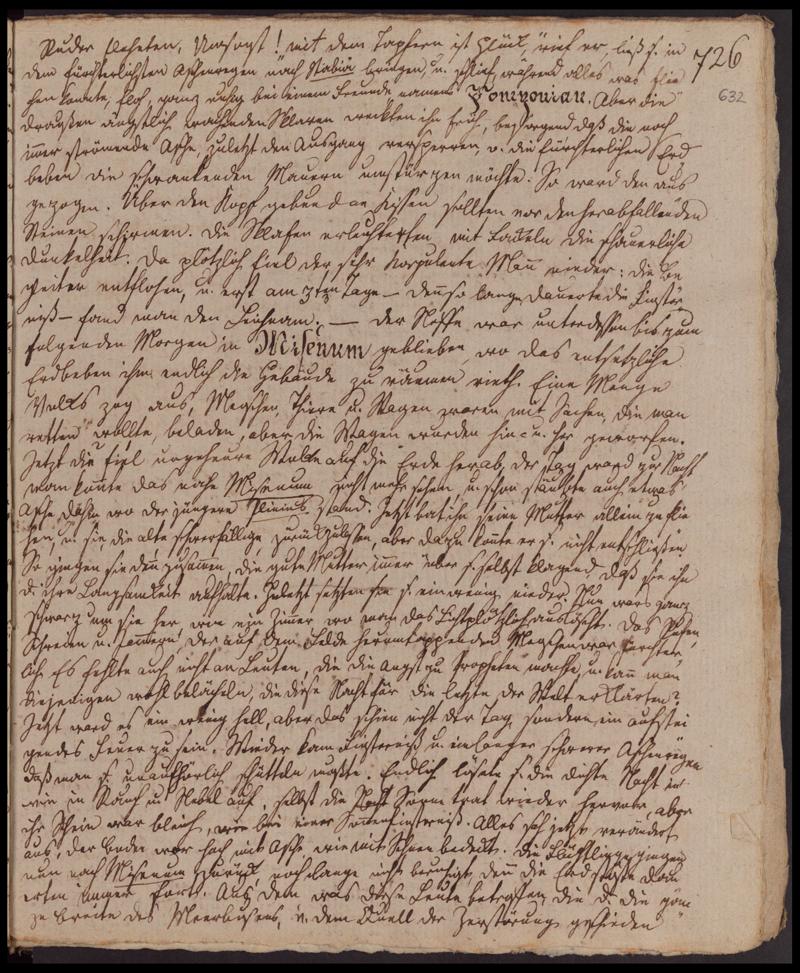 Ruder flehten, Umsonst! mit dem Tapfern ist Glück, rief er, ließ s. in
726
dem fürchterlichsten Aschenregen nach Stabiä bringen, u. schlief, während alles was flie
632
hen konnte, floh, ganz ruhig bei einem Freunde namens Pomponian. Aber die
draußen ängstlich wachenden Sklaven weckten ihn früh, besorgend daß die noch
immer strömende Asche, zuletzt den Ausgang versperren, u. die fürchterlichen Erd
beben die schwankenden Mauern umstürzen möchte. So ward denn aus
gezogen. Über den Kopf gebundene Kissen sollten vor den herabfallenden
Steinen schirmen. Die Sklafen erleuchteten mit Fackeln die schauerliche
Dunkelheit. Da plötzlich fiel der sehr korpulente Mann nieder: die Be
gleiter entflohen, u. erst am 3ten Tage — denn so lange dauerte die Finster
niß — fand man den Leichnam. — Der Neffe war unterdessen bis zum
folgenden Morgen in Misenum geblieben, wo das entsetzliche
Erdbeben ihm endlich die Gebäude zu räumen rieth. Eine Menge
Volks zog aus, Menschen, Thiere u. Wagen waren mit Sachen, die man
retten wollte, beladen, aber die Wagen wurden hin u. her geworfen.
Jetzt die fiel ungeheure Wolke auf die Erde herab, der Tag ward zur Nacht
man konnte das nahe Misenum nicht mehr sehen, u. schon stäubte auch etwas
Asche dahin wo der jüngere Plinius stand. Jetzt bat ihn seine Mutter allein zu flie
hen, u. sie, die alte schwerfällige zurückzulassen, aber dazu konnte er s. nicht entschließen
So gingen sie denn zusammen, die gute Mutter immer über s. selbst klagend daß sie ihn
d. ihre Langsamkeit aufhalte. Zuletzt setzten sie s. ein wenig nieder. Nun ward ganz
schwarz um sie her, wie ein Zimmer wo man das Licht plötzlich auslöscht. Das Rufen,
Schreien u. Jammern der auf dem Felde herumtappenden Menschen war fürchter
lich. Es fehlte auch nicht an Leuten, die die Angst zu Propheten machte, u. kann man
diejenigen wohl belächeln, die diese Nacht für die letzte der Welt erklärten?
Jetzt ward es ein wenig hell, aber das schien nicht der Tag, sondern ein aufstei
gendes Feuer zu sein. Wieder kam Finsterniß u. ein langer schwerer Aschenregen
daß man s. unaufhörlich schütteln mußte. Endlich lösete s. die dichte Nacht in
wie in Rauch u. Nebel auf, selbst die Sonne trat wieder hervor, aber
ihr Schein war bleich, wie bei einer Sonnenfinsterniß. Alles sah jetzt verändert
aus, der Boden war hoch mit Asche wie mit Schnee bedeckt. Die Flüchtlinge gingen
nun nach Misenum zurück, noch lange nicht beruhigt, denn die Erdstöße dau
erten immer fort. Aus dem was diese Leute betroffen, die d. die gan
ze Breite des Meerbusens, v. dem Quell der Zerstörung geschieden